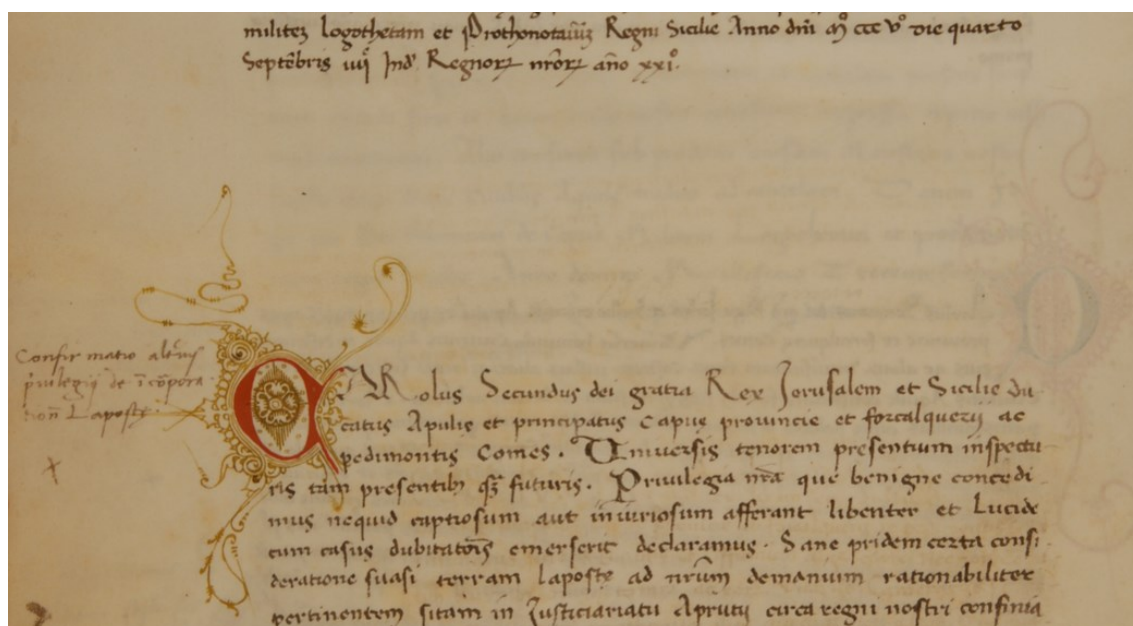 militeȝ logothetam et Prothonotariũȝ Regni Sicilie Anno dn̄i Mº ccc vº die quarto
Septẽbris iiijº Ind' Regnorꝝ nrõrꝝ año xxiº.
Confirmatio alt'ius
priuilegij de ĩcorpora
tion̄ Laposte
CARolus Secundus dei gratia Rex Jerusalem et Sicilie du
catus Apulie et principatus Capue prouincie et forcalquerij ac
pedimontis Comes. Uniuersis tenorem presentium inspectu
ris tam presentibꝫ qꝫ futuris. Priuilegia nr̄a que benigne concedi
mus nequid captiosum aut iniuriosum afferant libenter et Lucide
cum casus dubitatõis emerserit declaramus. Sane pridem certa consi
deratione suasi terram laposte ad nrũm demanium rationabiliter
pertinentem sitam in Justiciariatu Aprutij circa regni nostri confinia